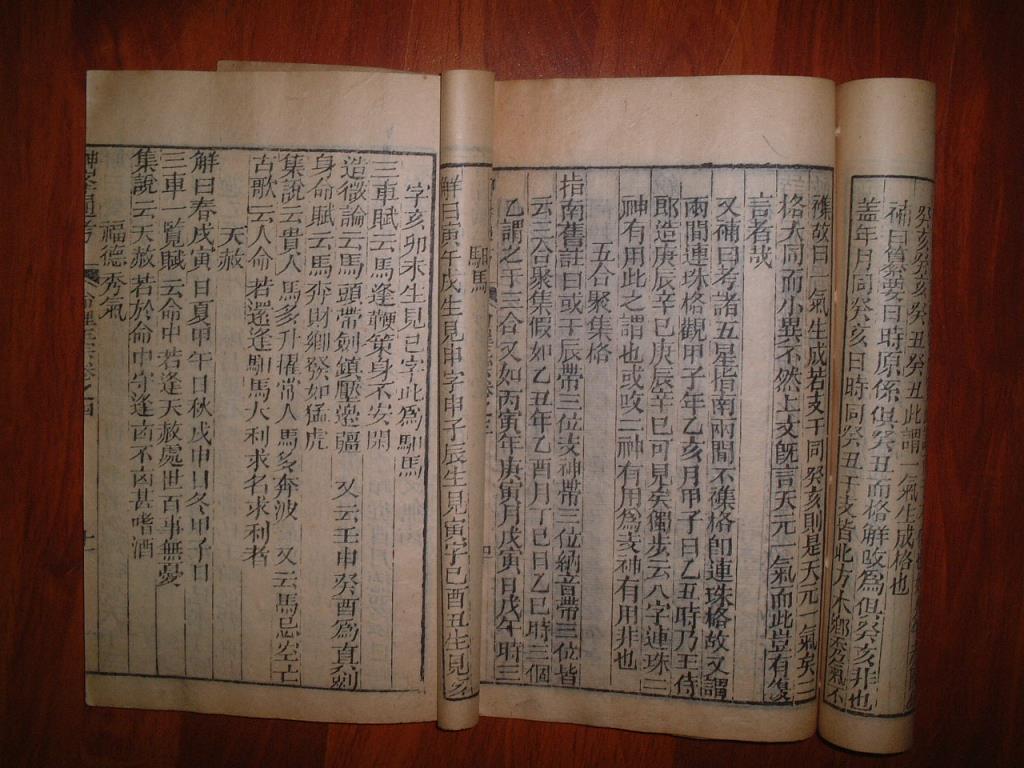 癸亥癸亥癸丑癸丑此謂一氣生成格也
補曰纂要日時原係俱癸丑而格解改為俱癸亥非也
蓋年月同癸亥日時同癸丑干支皆北方水鄉
襍故曰一氣生成若支干同癸亥則是天元一氣矣二
格大同而小異不然上文旣言天元一氣而此豈有復
言者哉
又補曰考諸五星指南兩間不襍格卽連珠格故又謂
兩間連珠格觀甲子年乙亥月甲子日乙丑時乃王侍
郎造庚辰辛巳庚辰辛巳可見矣獨步云八字連珠二
神有用此之謂也或改二神有用為支神有用非也
五合聚集格
指南舊註曰或干辰帶三位支神帶三位納音帶三位皆
云三合聚集假如乙丑年乙酉月丁巳日乙巳時三個
乙謂之干三合又如丙寅年庚寅月戊寅日戊午時三
馹馬
解曰寅午戌生見申字申子辰生見寅字巳酉丑生見亥
字亥卯未生見巳字此為馹馬
三車賦云馬逢鞭策身不安閑
造微論云馬頭帶劍鎮壓邊疆 又云壬申癸酉為真劍
身命賦云馬奔財鄉發如猛虎
集說云貴人馬多升擢常人馬多奔波 又云馬忌空亡
古歌云人命若還逢馹馬大利求名求利者
天赦
解曰春戊寅日夏甲午日秋戊申日冬甲子日
三車一覽賦云命中若逢天赦處世百事無憂
集說云天赦若於命中守逢凶不凶甚嗜酒
福德秀氣